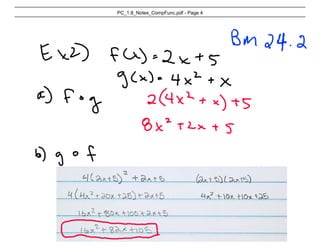 PC_1.8_Notes_CompFunc.pdf - Page 4
Bm 24.2
Ex2) f(x)=2x+5
g(x)=4x²+x
a) f∘g 2(4x²+x)+5
8x²+2x+5
b) g∘f
4(2x+5)²+2x+5 (2x+5)(2x+5)
4(4x²+20x+25)+2x+5 4x²+10x+10x+25
16x²+80x+100+2x+5
16x²+82x+105